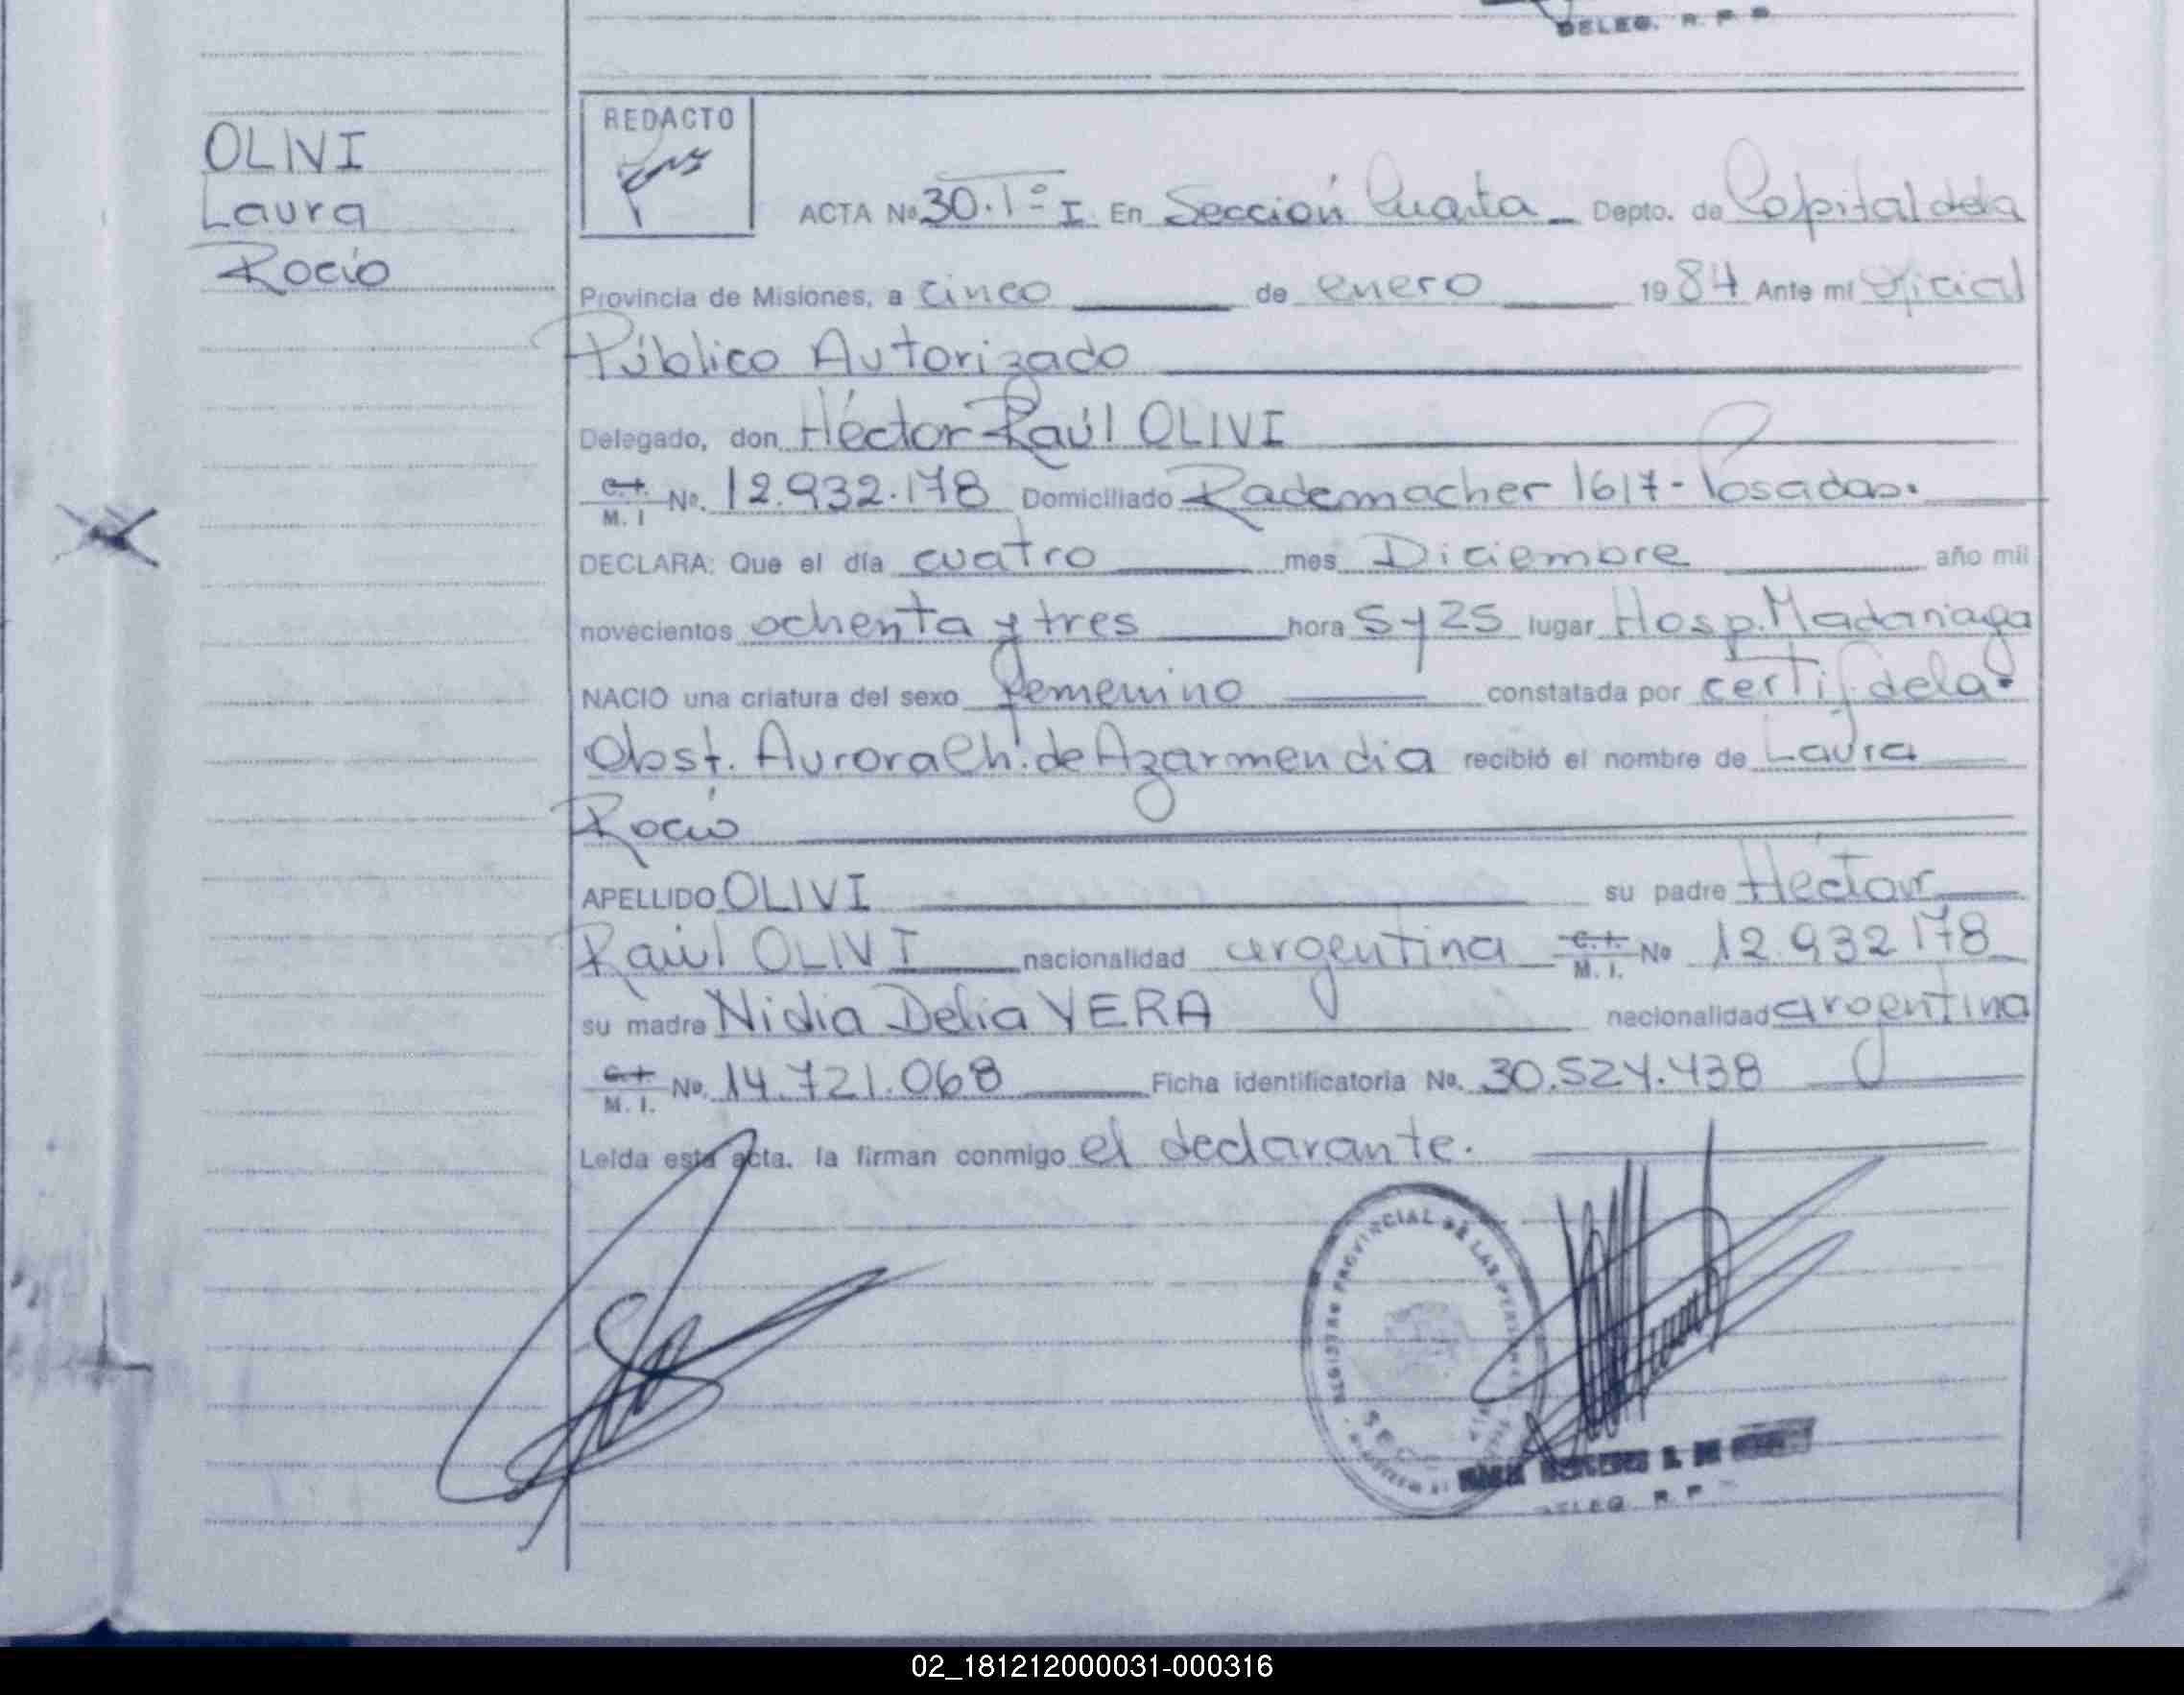 DELEG. R. P. P.
OLIVI
Laura
Rocío
REDACTO
ACTA No 30.1º I En Sección Cuarta Depto. de Capital de la
Provincia de Misiones, a cinco de enero 1984 Ante mi Oficial
Público Autorizado
Delegado, don Héctor Raúl OLIVI
C.I. M. I No. 12.932.178 Domiciliado Rademacher 1617 - Posadas.
DECLARA: Que el día cuatro mes Diciembre año mil
novecientos ochenta y tres hora 5 y 25 lugar Hosp. Madariaga
NACIO una criatura del sexo femenino constatada por certif. de la
Obst. Aurora Ch. de Azarmendia recibió el nombre de Laura
Rocío
APELLIDO OLIVI su padre Héctor
Raúl OLIVI nacionalidad argentina C.I. M. I. No 12.932.178
su madre Nidia Delia VERA nacionalidad argentina
C.I. M. I. No. 14.721.068 Ficha identificatoria No. 30.524.438
Leída esta acta. la firman conmigo el declarante.
REGISTRO PROVINCIAL DE LAS
DELEG. R. P.
02_181212000031-000316